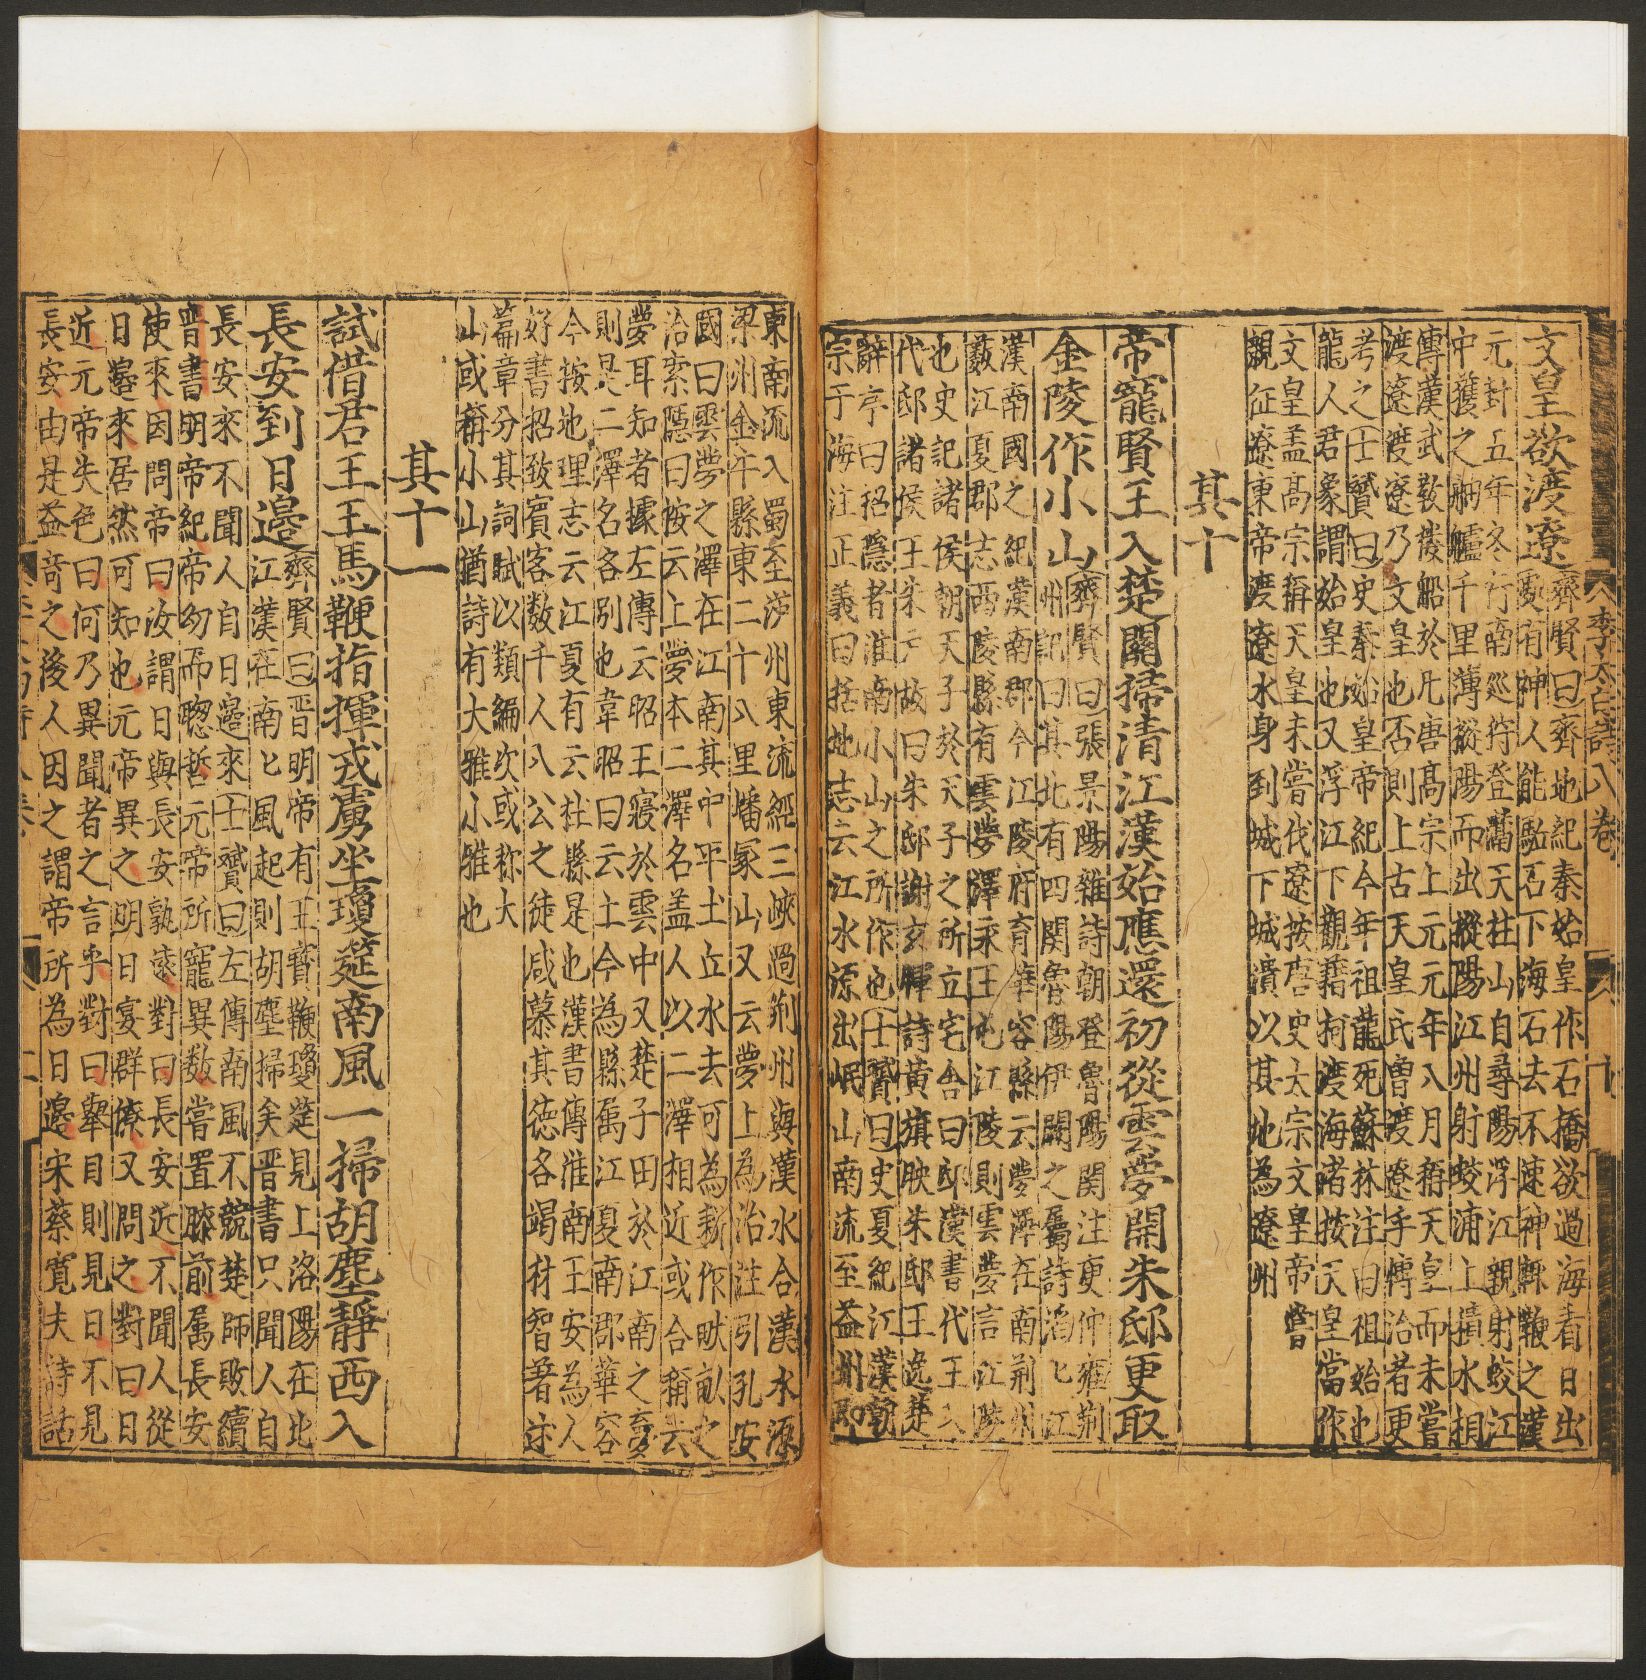 文皇欲渡遼
齊賢曰齊地紀秦始皇作石橋欲過海看日出
處有神人能駈石下海石去不速神輙鞭之漢
元封五年冬行南巡狩登灊天柱山自尋陽浮江親射蛟江
中獲之舳艫千里薄樅陽而出樅陽江州射蛟浦上積水相
傳漢武教樓船於此唐高宗上元元年八月稱天皇而未嘗
渡遼渡遼乃文皇也否則上古天皇氏曾渡遼乎博洽者更
考之士贇曰史秦始皇帝紀今年祖龍死蘇林注曰祖始也
龍人君象謂始皇也又浮江下觀藉柯渡海渚按天皇當作
文皇盖高宗稱天皇未嘗伐遼按唐史太宗文皇帝嘗
親征遼東帝渡遼水身到城下城潰以其地為遼州
其十
帝寵賢王入楚關掃清江漢始應還初從雲夢開朱邸更取
金陵作小山
齊賢曰張景陽雜詩朝登魯陽関注更仲雍荆
州記曰其北有四関魯陽伊闕之屬詩滔匕江
漢南國之紀漢南郡今江陵府有華容縣云夢澤在南荆州
藪江夏郡志西陵縣有雲夢澤永王屯江陵則雲夢言江陵
也史記諸侯朝天子於天子之所立宅舍曰邸漢書代王入
代邸諸侯王朱户故曰朱邸謝玄暉詩黃旗映朱邸王逸楚
辭亭曰招隱者淮南小山之所作也士贇曰史夏紀江漢朝
宗于海注正義曰括地志云江水源出岷山南流至益州即
東南流入蜀至瀘州東流經三峽過荆州與漢水合漢水源
梁州金牛縣東二十八里嶓冢山又云夢上為治注引孔安
國曰雲夢之澤在江南其中平土丘水去可為耕作畎畝之
治索隱曰按云上夢本二澤名盖人以二澤相近或合稱云
夢耳知者據左傳云昭王寢於雲中又楚子田於江南之夢
則是二澤名各別也韋昭曰云土今為縣屬江夏南郡華容
今按地理志云江夏有云杜縣是也漢書傳淮南王安為人
好書招致賓客数千人八公之徒咸慕其德各竭材智著述
篇章分其詞賦以類編次或称大
山或稱小山猶詩有大雅小雅也
其十一
試借君王玉馬鞭指揮戎虜坐瓊筵南風一掃胡塵靜西入
長安到日邊
齊賢曰晋明帝有王寳鞭瓊筵見上洛陽在北
江漢在南匕風起則胡塵掃矣晋書只聞人自
長安來不聞人自日邉來士贇曰左傳南風不競楚師敗續
晋書明帝紀帝幼而聰哲元帝所寵異数嘗置膝前属長安
使來因問帝曰汝謂日與長安孰遠對曰長安近不聞人從
日邉來居然可知也元帝異之明日宴群僚又問之對曰日
近元帝失色曰何乃異聞者之言乎對曰舉目則見日不見
長安由是益奇之後人因之謂帝所為日邉宋蔡寬夫詩話
李太白詩八卷
十